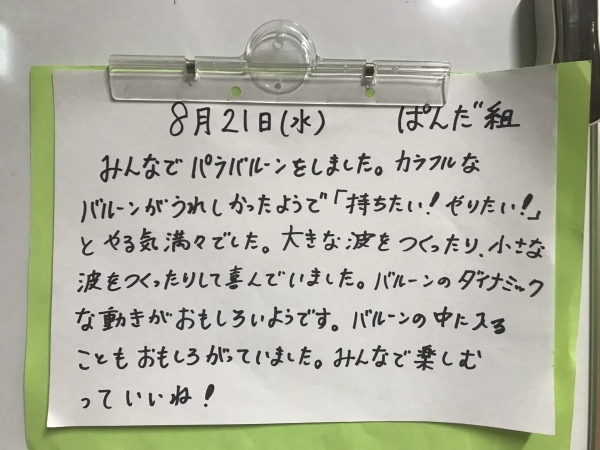 8月21日(水) ぱんだ組
みんなでパラバルーンをしました。カラフルな
バルーンがうれしかったようで「持ちたい！やりたい！」
とやる気満々でした。大きな波をつくったり、小さな
波をつくったりして喜んでいました。バルーンのダイナミック
な動きがおもしろいようです。バルーンの中に入る
こともおもしろがっていました。みんなで楽しむ
っていいね！